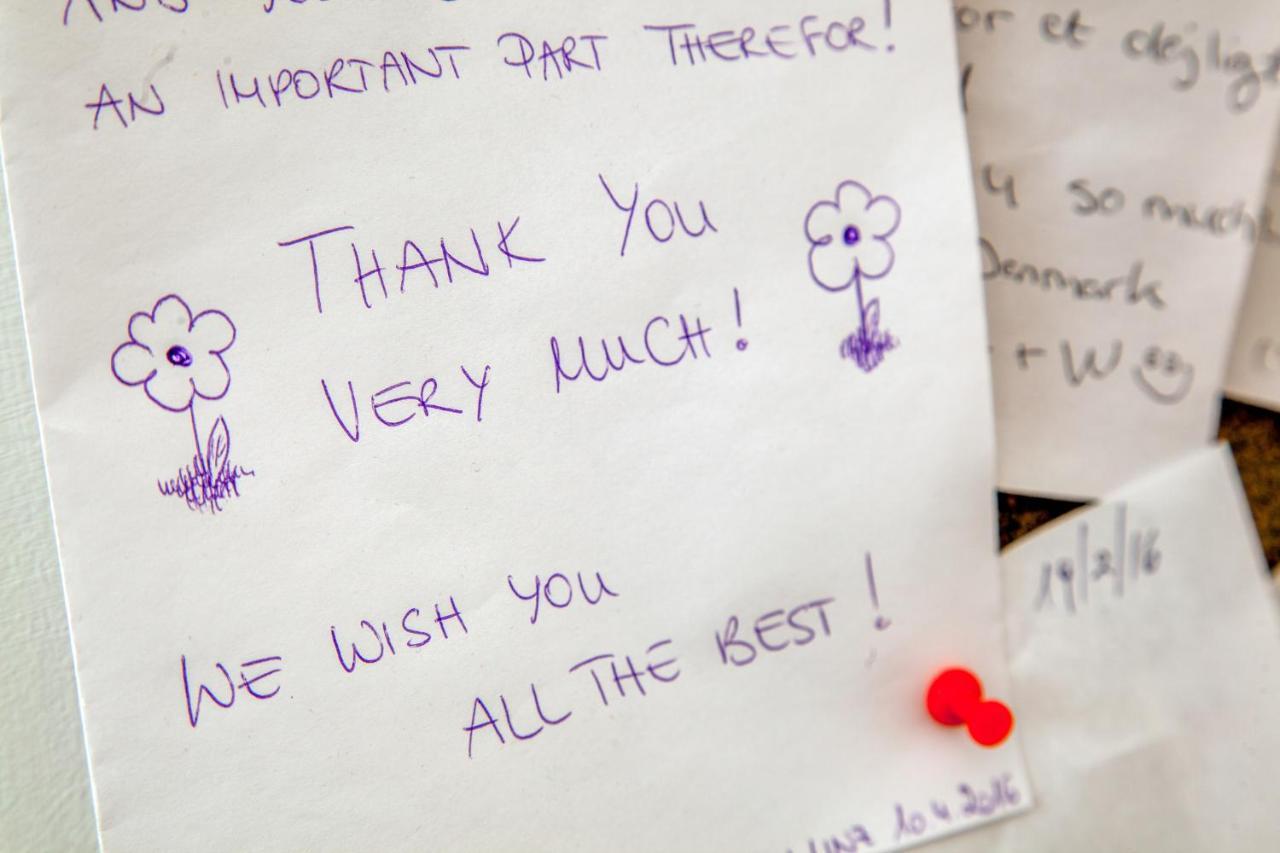 AN IMPORTANT PART THEREFOR!
THANK YOU
VERY MUCH!
WE WISH YOU
ALL THE BEST!
10.4.2016
or et dejligt
so much
Denmark
+ W
19/2/16